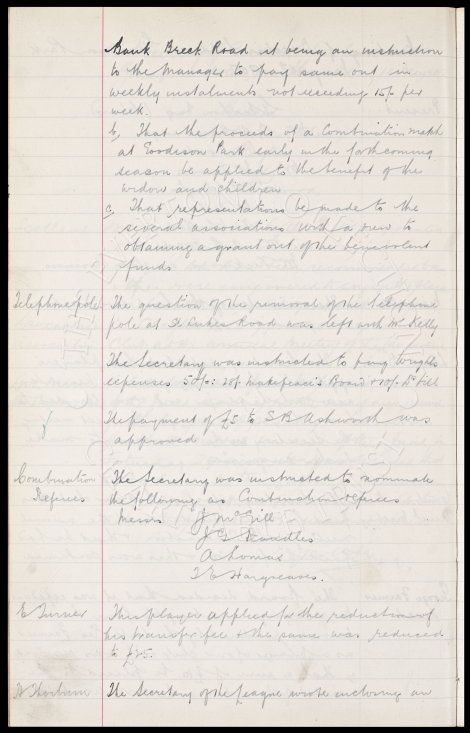 Bank Breck Road it being an instruction
to the Manager to pay same out in
weekly instalments not exceeding 15/- per
week.
b, That the proceeds of a Combination match
at Goodison Park early in the forthcoming
season be applied to the benefit of the
widow and children
c, That representations be made to the
several associations with a view to
obtaining a grant out of the benevolent
funds
Telephone pole. The question of the removal of the telephone
pole at St Lukes Road was left with Mr Kelly
The Secretary was instructed to pay Wrights
expenses 50/-: 20/- Makepeace's Board &
The payment of £5 to S B Ashworth was
approved
Combination The Secretary was instructed to nominate
Referees the following as Combination referees
Messrs J McGill
J G
A Lomas
T E Hargreaves.
E Turner This player applied for the reduction of
his transfer fee & the same was reduced
to £25.
The Secretary of the League wrote enclosing an